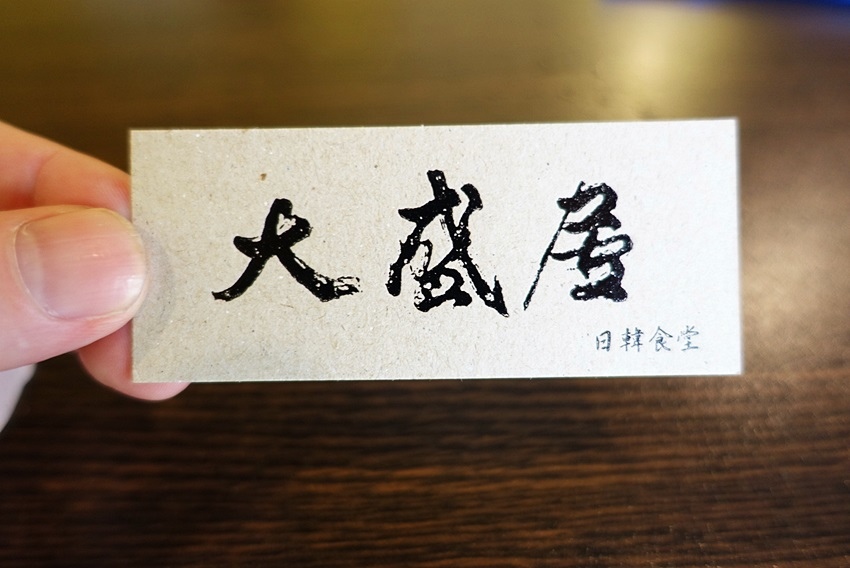 大盛屋
日韓食堂